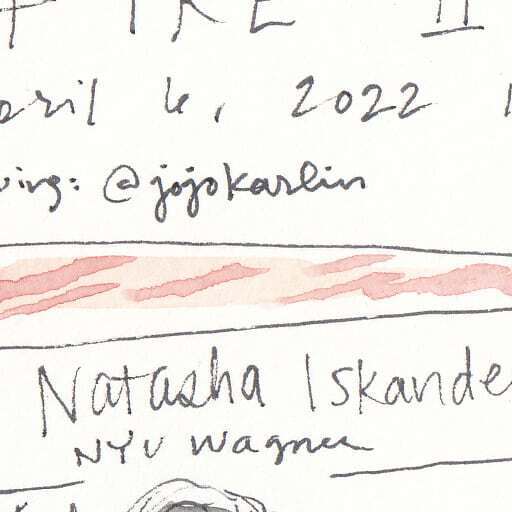 IRE II
ril 6, 2022
ing: @jojokarlin
Natasha Iskande
NYU Wagner